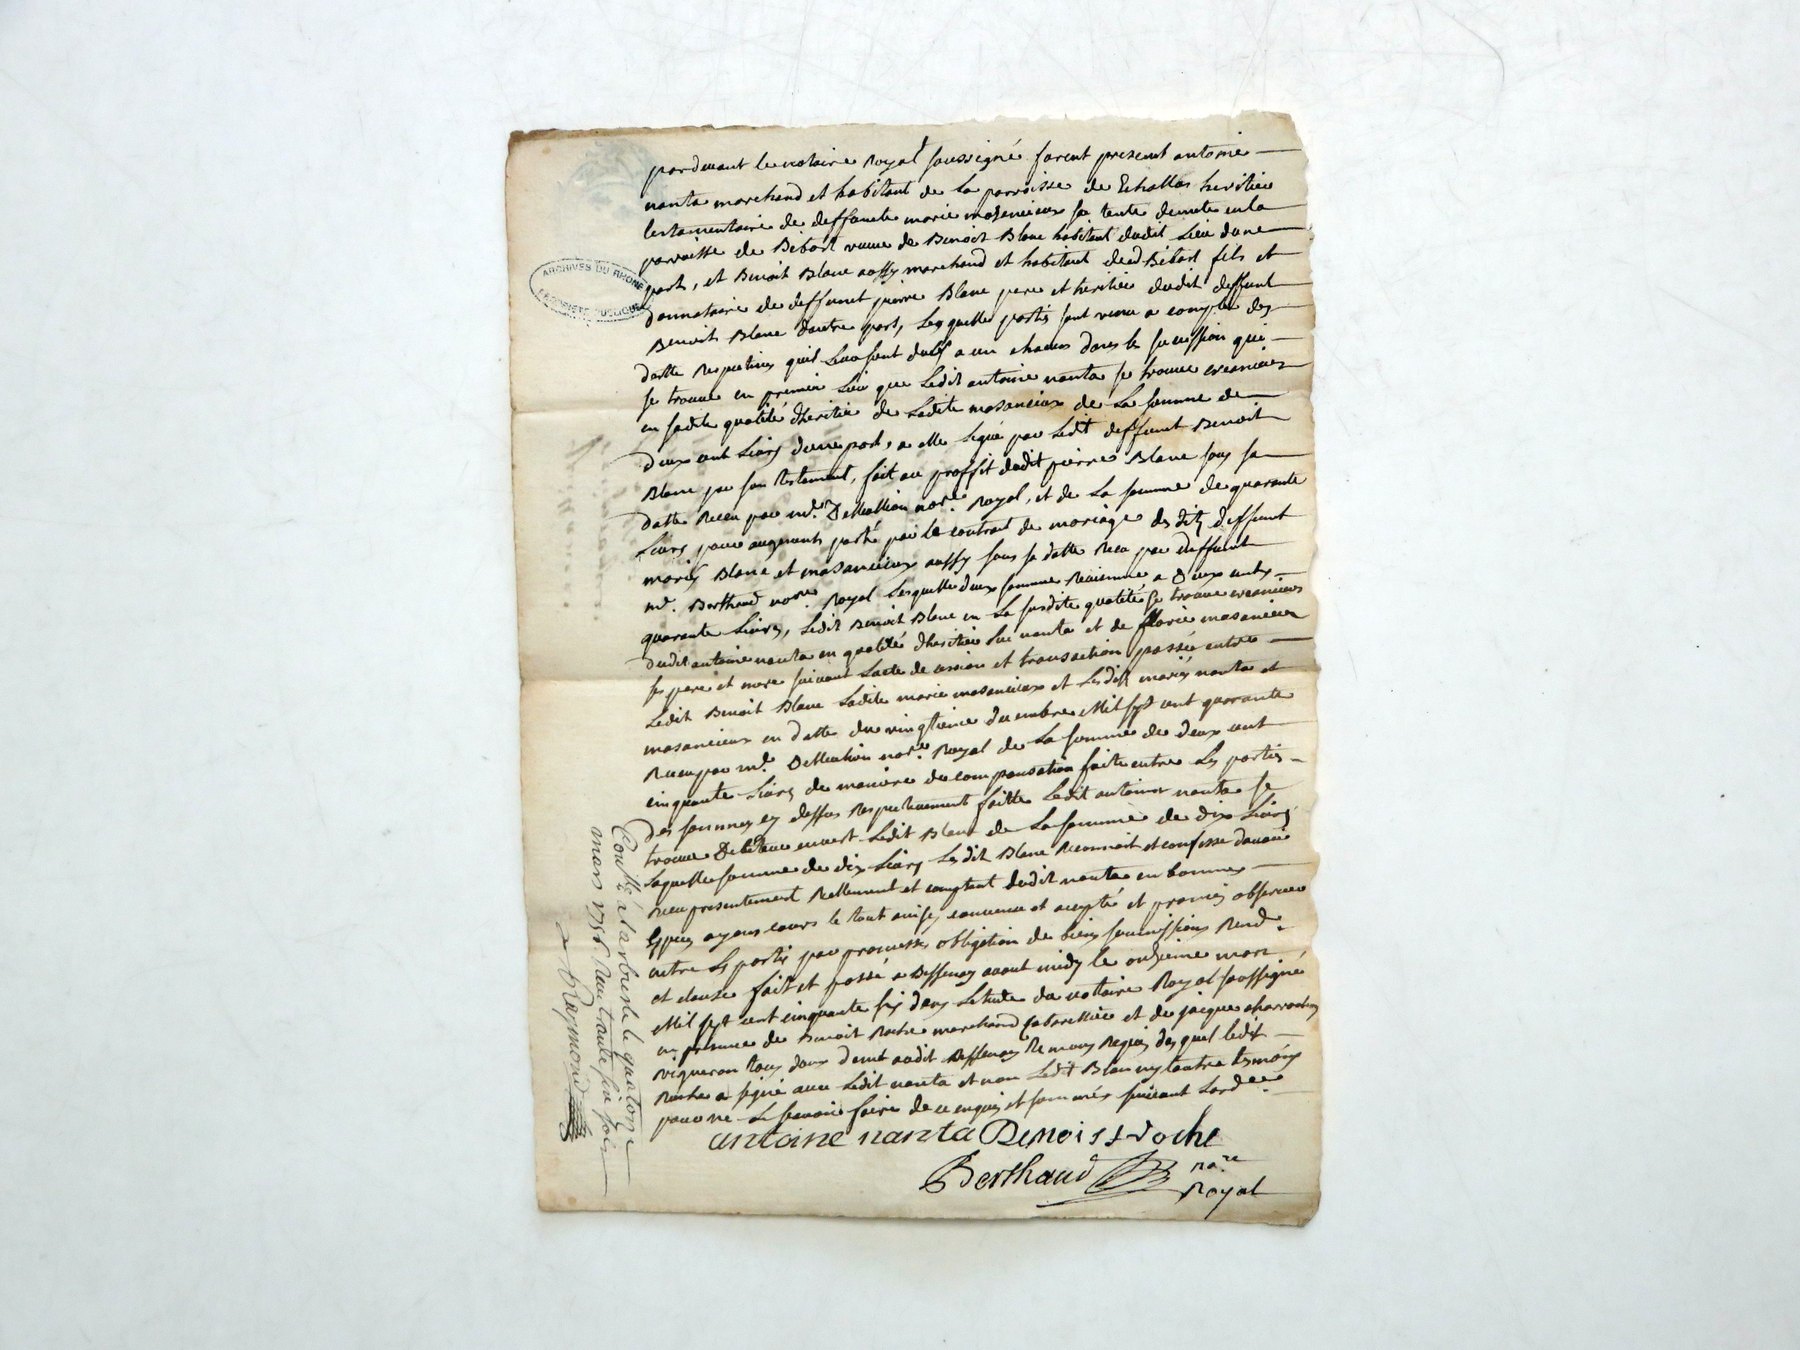 pardevant le notaire Royal soussigné furent present antoine
nanta marchand et habitant de la parroisse de Echallas heritier
testamentaire de deffuncte marie masancieux sa tante demte en la
parroisse de Bibost veuve de Benoit Blanc habitant dudit Lieu dune
part, et Benoit Blanc aussy marchand et habitant dud Bibost fils et
donnataire de deffunct pierre Blanc pere et heritier dudit deffunt
Benoit Blanc dautre part, Lesquelles partis sont venu a compte des
datte Respectives quil Leur sont a un chacun dans la sucission qui
se trouve en premier Lieu que Ledit antoine nanta se trouve creancier
en sadite qualité dheritier de Ladite masancieux de La somme de
deux cent Livres dune part, a elle Legué par Ledit deffunct Benoit
Blanc par son testament, fait au proffit dudit pierre Blanc sous sa
datte Receu par me. notre. Royal, et de La somme de quarante
Livres pour augment porté par le contrat de mariage des dits deffunt
mariés Blanc et masancieux aussy sous sa datte Receu par deffunt
me. Berthaud notre. Royal Lesquelle deux somme Reviennent a Deux cents
quarante Livres, Ledit Benoit Blanc en La susdite qualité se trouve creancier
dudit antoine nanta en qualité dheritier Luc nanta et de florie masancieu
ses pere et mere suivant Lacte de cession et transaction passée entre
Ledit Benoit Blanc Ladite marie masancieux et Lesdits mariés nanta et
masancieux en datte du vingtieme decembre Mil sept cent quarante
Receu par me. notre. Royal de La somme de deux cent
cinquante Livres de maniere de compensation faite entre Les parties
des sommes cy dessus Respectivement faitte Ledit antoine nanta se
trouve Debiteur envers Ledit Blanc de La somme de dix Livres
Laquelle somme de dix Livres Ledit Blanc Reconnoit et confesse davoir
Receu presentement Reellement et comptant dudit nanta en bonnes
Espces ayant cours le tout ainsy convenu et accepté et promis observer
entre Les partis par promesses obligation de biens soumissions Rend.
et clause fait et passé a Bessenay avant midy le onzieme mars
Mil sept cent cinquante six dans Letude du nottaire Royal soussigné
en presence de Benoit Roche marchand Cabarettier et de jacque charvoulin
vigneron tous deux demt audit Bessenay temoins Requis desquel ledit
Roche a signé avec Ledit nanta et non Ledt Blanc ny lautre temoins
pour ne Le scavoir faire de ce enquis et sommés suivant Lordce.
antoine nanta Benoist roche
Berthaud
nore
Royal
Conllé a Larbresle le quatorze
mars 1756 Reçu trante six sols
Reymond
ARCHIVES DU RHONE